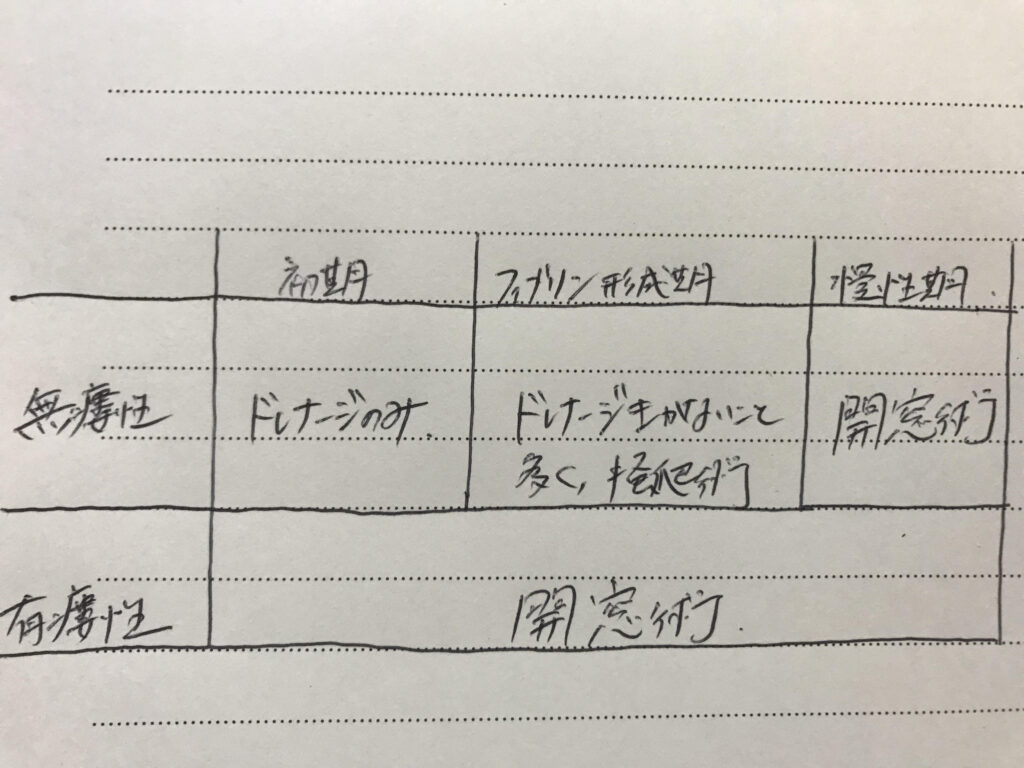 初期 フィブリン形成期 慢性期
無瘻性 ドレナージのみ ドレナージきかないこと多く,掻爬術 開窓術
有瘻性 開窓術